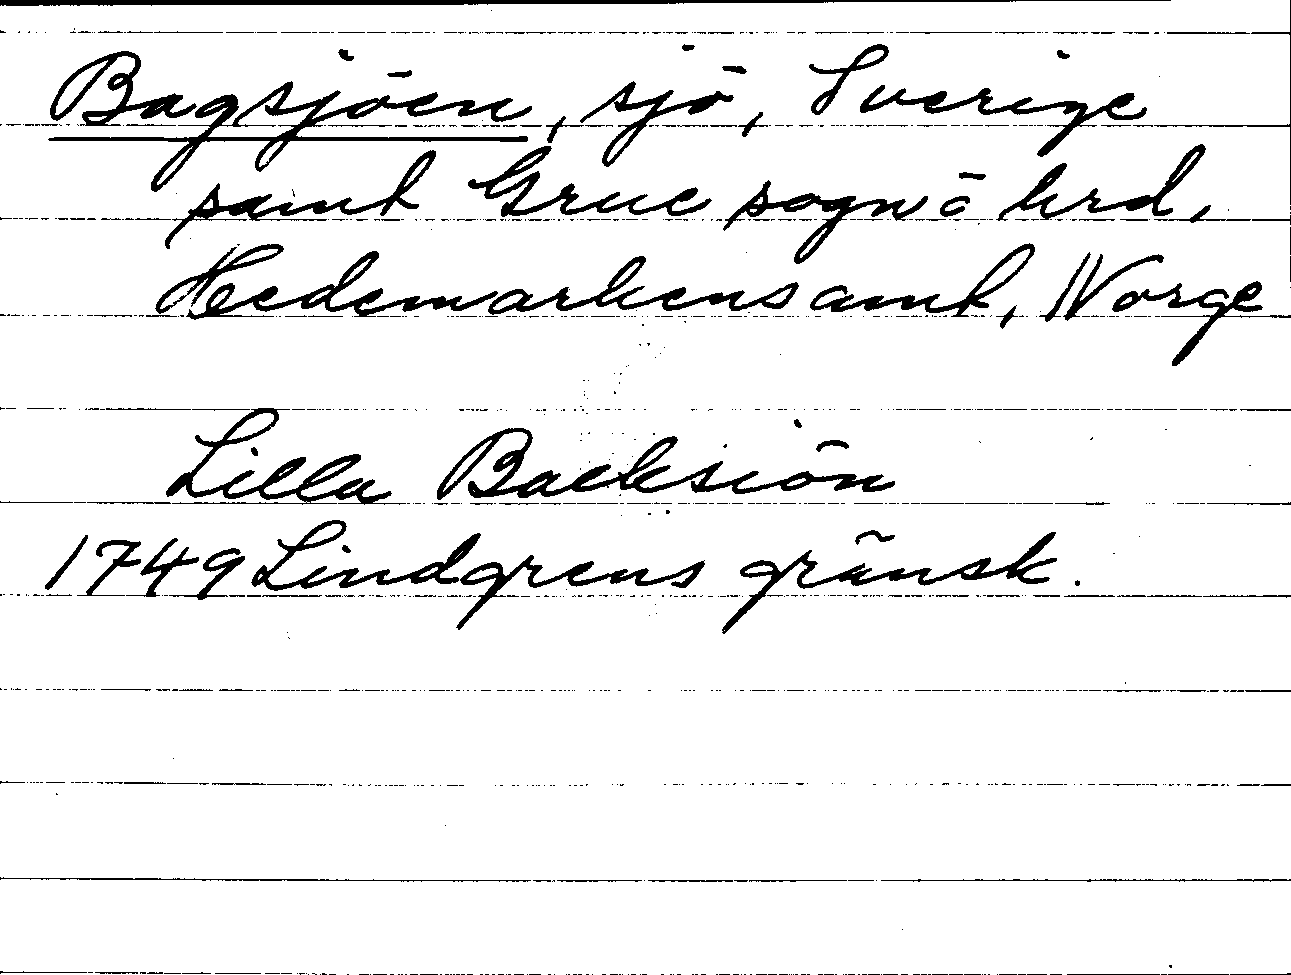 Bagsjöen, sjö, Sverige
samt Grue sogn o hrd,
Hedemarkens amt, Norge
Lilla Backsiön
1749 Lindgrens gränsk.